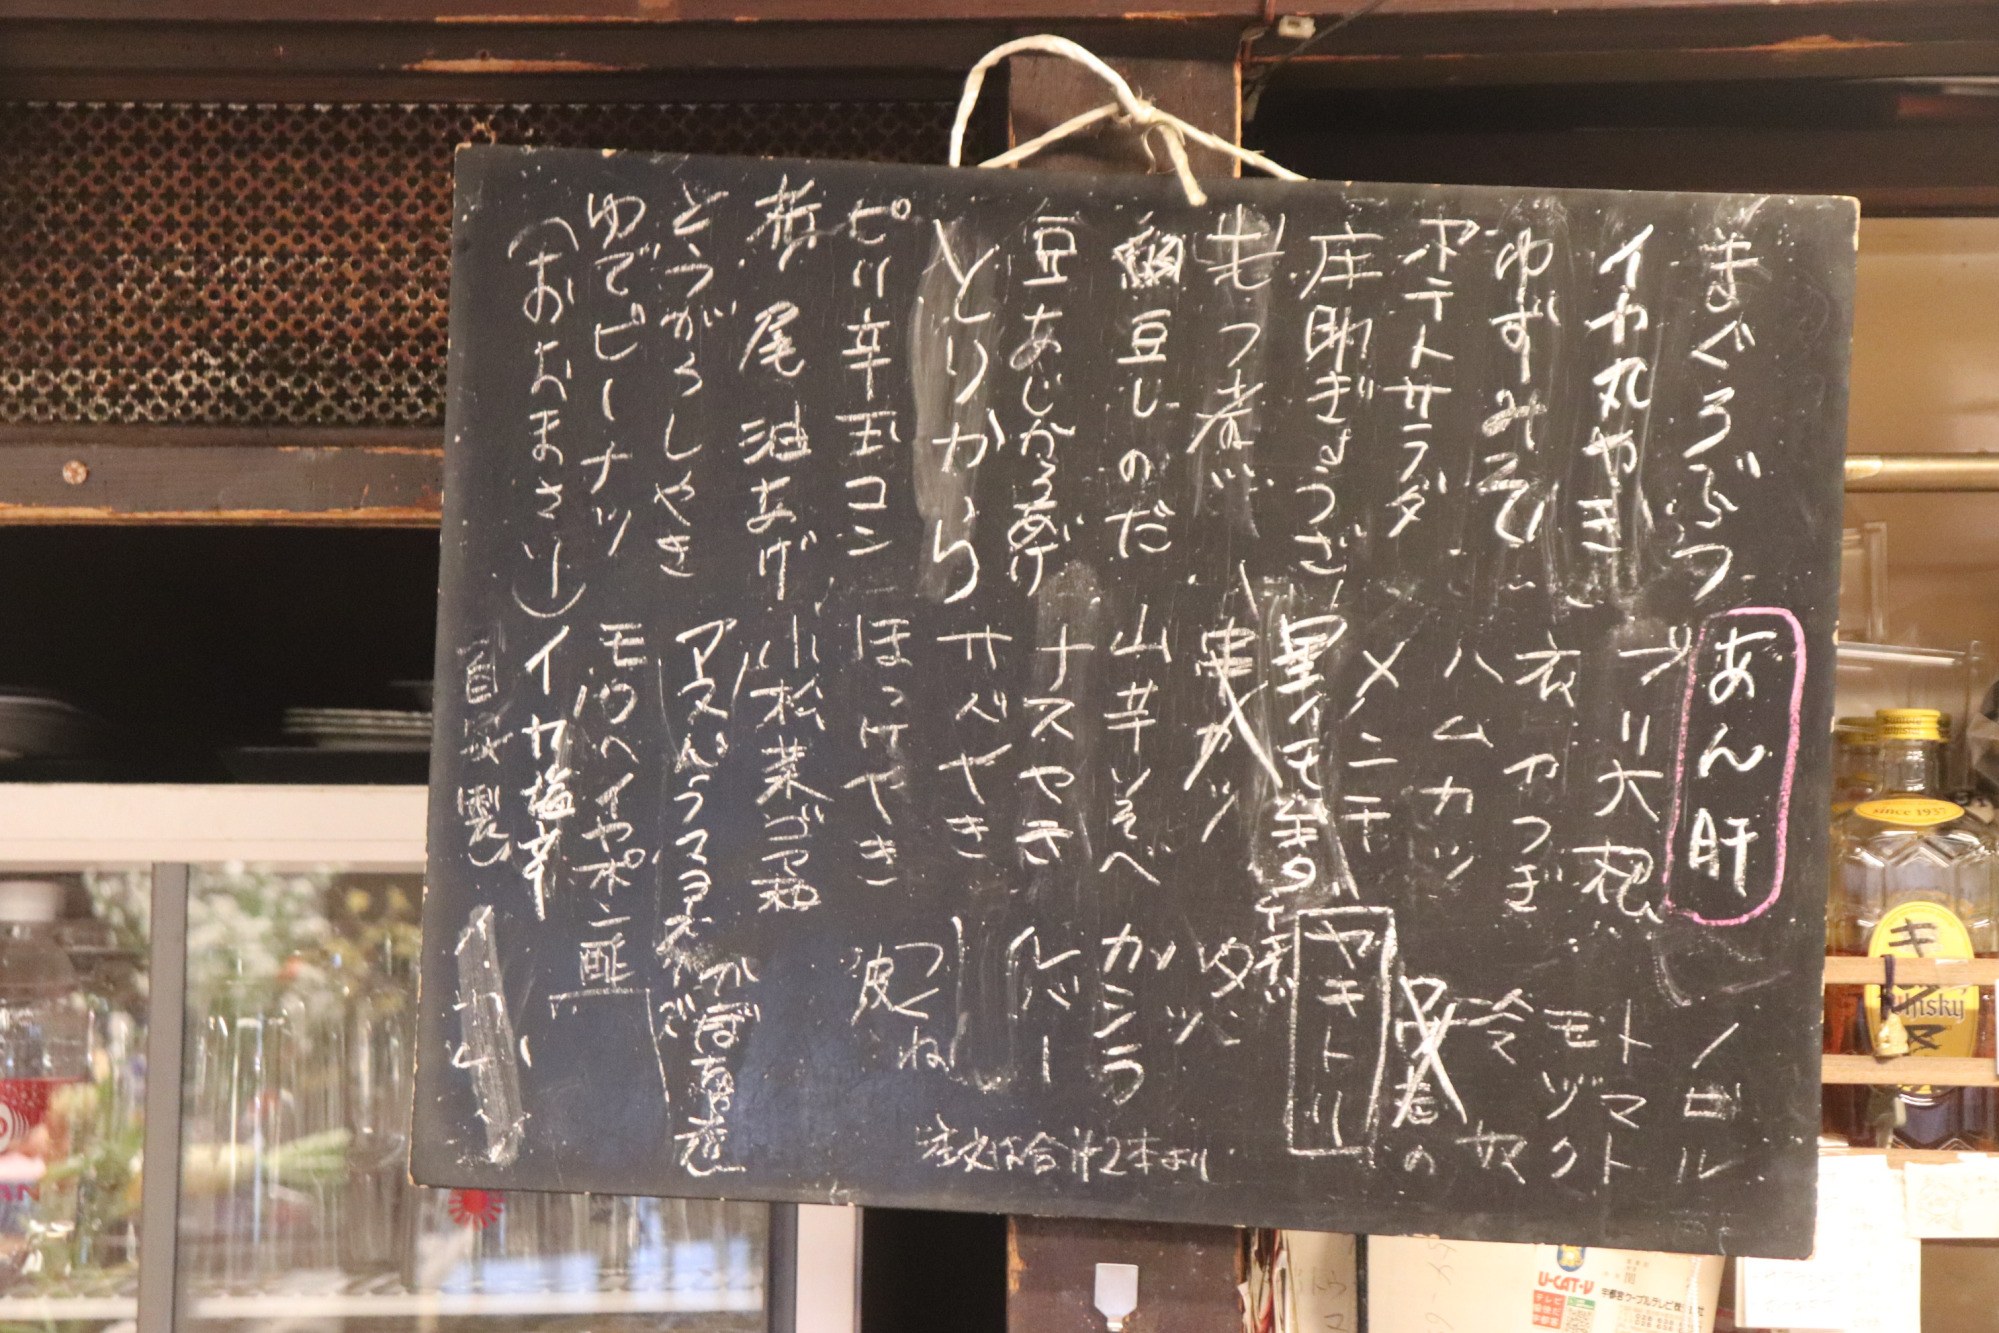 まぐろぶつ
イカ丸やき
ゆずみそ
ポテトサラダ
庄助ぎょうざ
もつ煮
納豆しのだ
豆あじからあげ
とりから
ピリ辛玉コン
栃尾油あげ
とうがらしやき
ゆでピーナツ
(おおまさり)
あん肝
ブリ大根
衣かつぎ
ハムカツ
メンチ
里イモ
串カツ
山芋そべ
ナスやき
サバやき
ほっけやき
小松菜ゴマ和
モウカノ
イカ塩辛
自家製
ノビル
トマト
モヅク
冷ヤ
ヤキトリ
タン
ハツ
カシラ
レバー
つくね
皮
注文は合計2本より
since 1937
Whisky
U-CAT・V
テレビ
宇都宮ケーブルテレビ株式会社